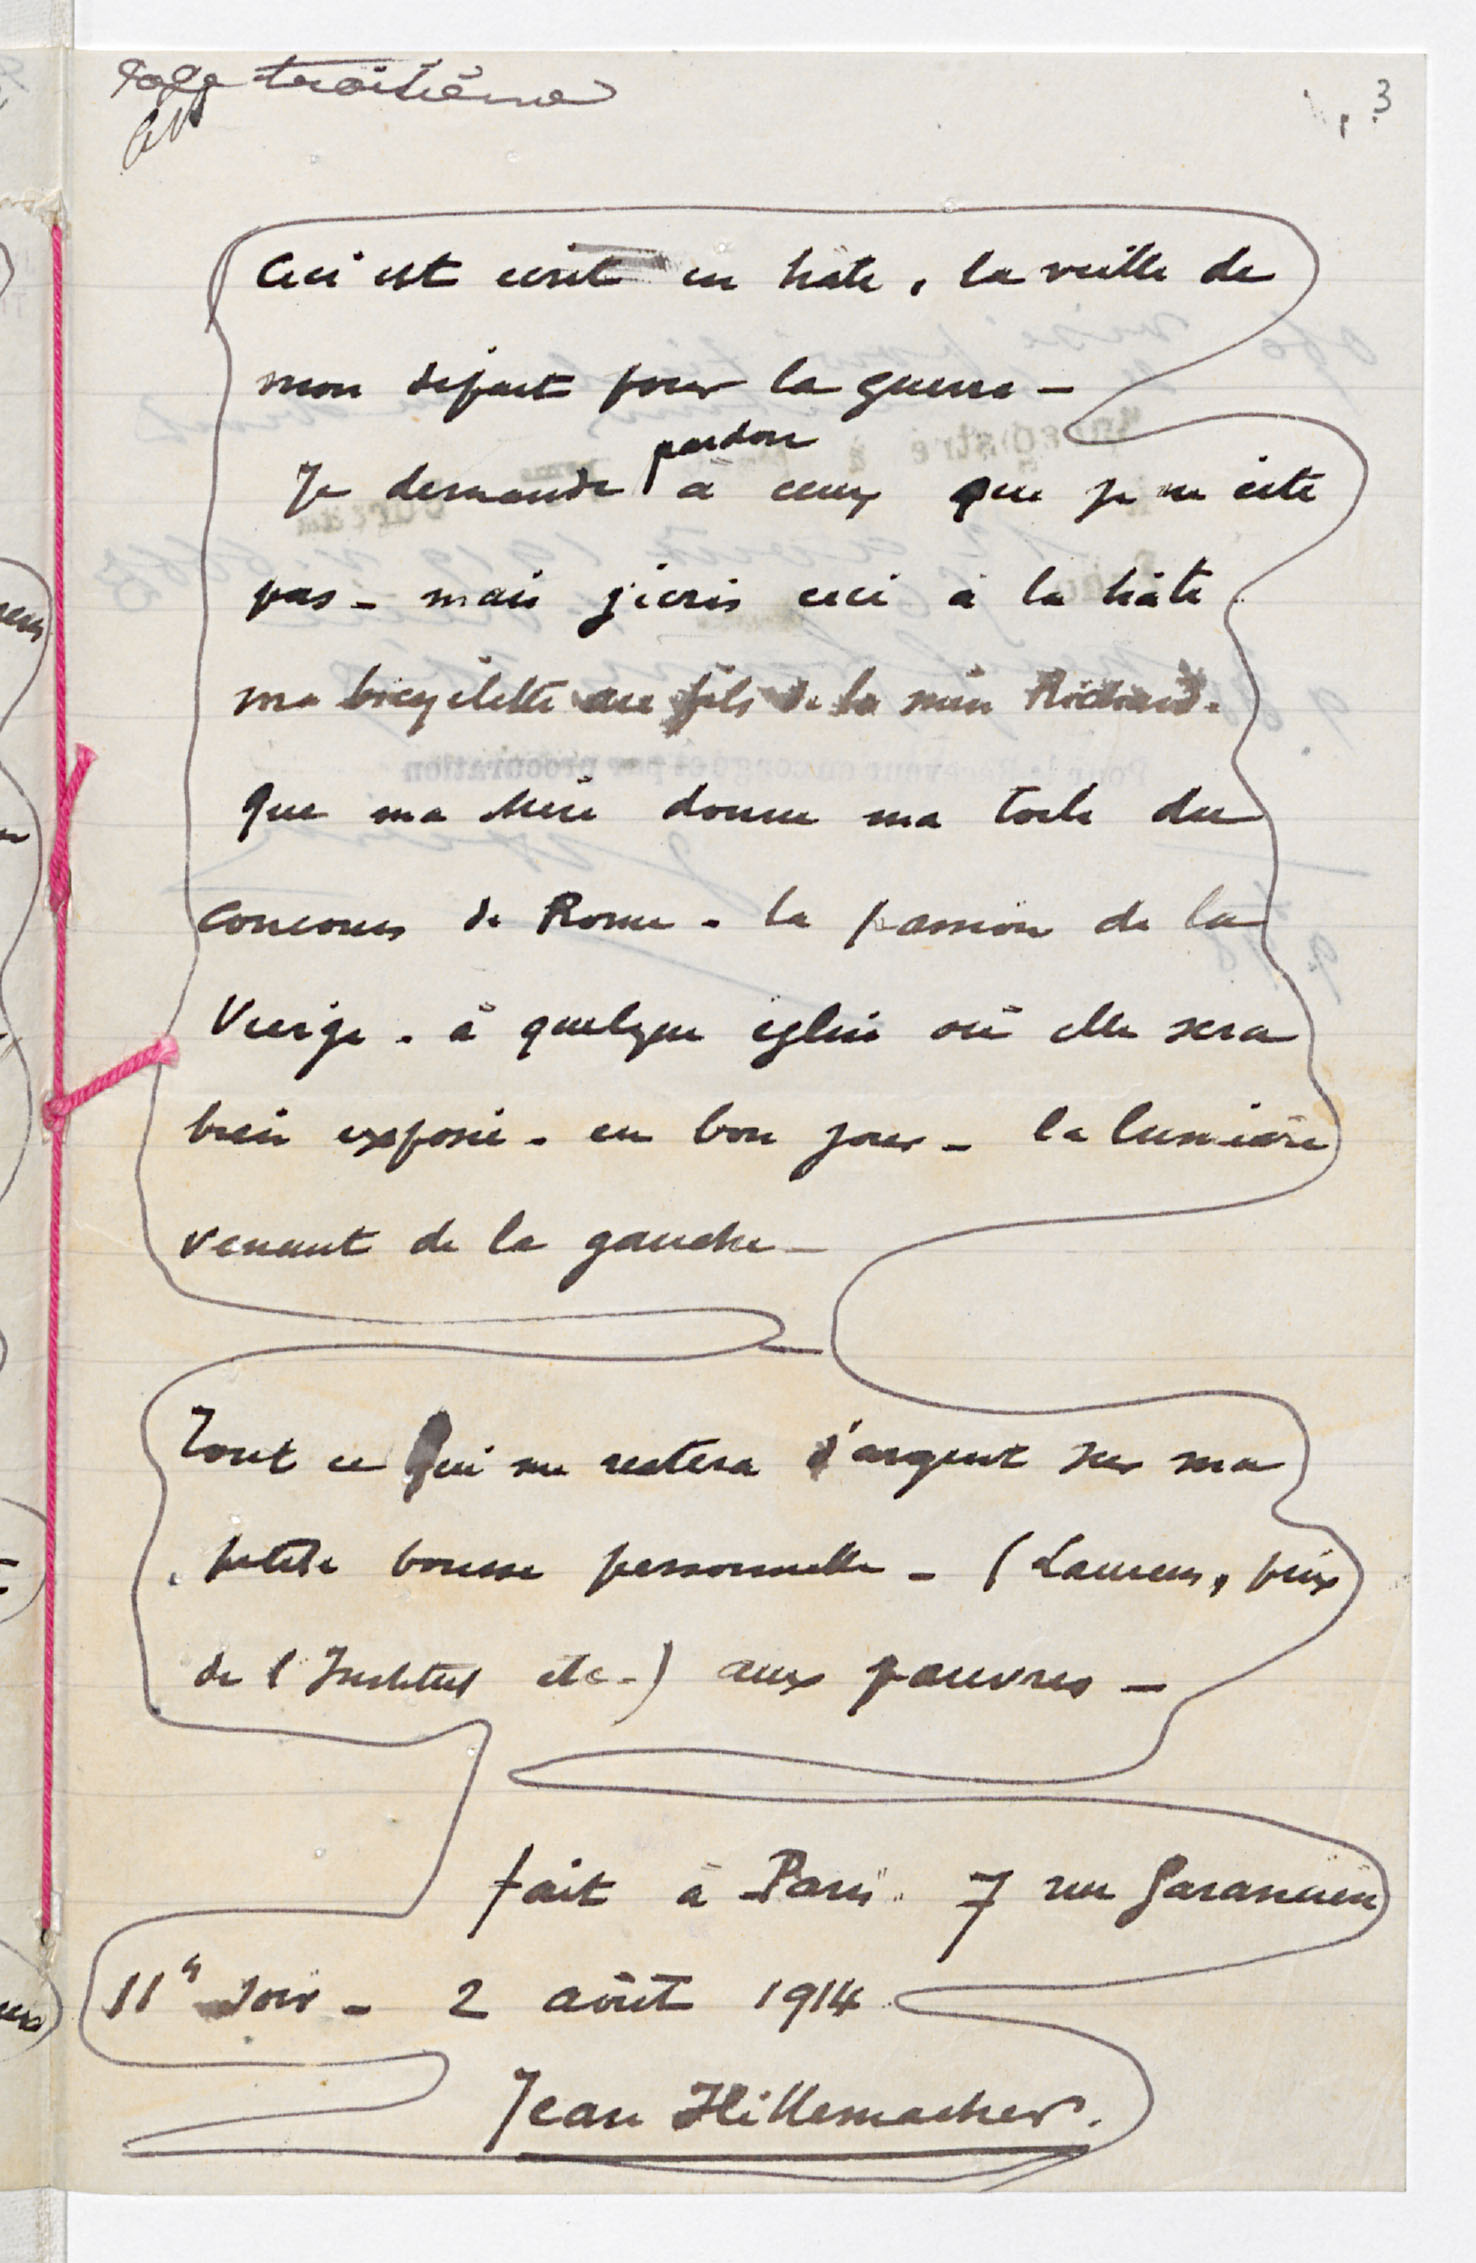 Page troisième
3
Ceci est écrit en hâte, la veille de
mon départ pour la guerre -
Je demande pardon à ceux que je ne cite
pas - mais j'écris ceci à la hâte
ma bicyclette au fils de la mère Richard.
Que ma Mère donne ma toile du
concours de Rome - la passion de la
Vierge - à quelque église où elle sera
bien exposée - en bon jour - la lumière
venant de la gauche -
Tout ce qui me restera d'argent sur ma
petite bourse personnelle - (Laurens, prix
de l'Institut etc-) aux pauvres -
fait à Paris. 7 rue Garancière
11h soir - 2 août 1914
Jean Hillemacher.